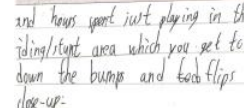 and hours spent just playing in th
iding/stunt area which you get to
down the bumps and flips
close-up-